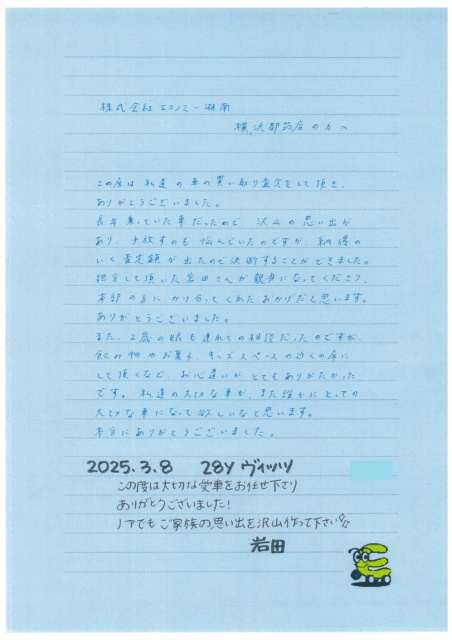 株式会社エコノミー湘南
横浜都筑店の方へ
この度は私達の車の買い取り査定をして頂き、
ありがとうございました。
長年乗っていた車だったので、沢山の思い出が
あり、手放すのも悩んでいたのですが、納得の
いく査定額が出たので決断することができました。
担当して頂いた岩田さんが親身になってくださり、
本部の方にかけ合ってくれたおかげだと思います。
ありがとうございました。
また、2歳の娘も連れての相談だったのですが、
飲み物やお菓子、キッズスペースの近くの席に
して頂くなど、お心遣いがとてもありがたかった
です。私達の大切な車が、また誰かにとっての
大切な車になって欲しいなと思います。
本当にありがとうございました。
2025.3.8 28Y ヴィッツ
この度は大切な愛車をお任せ下さり
ありがとうございました!
ノアでもご家族の思い出を沢山作って下さい
岩田